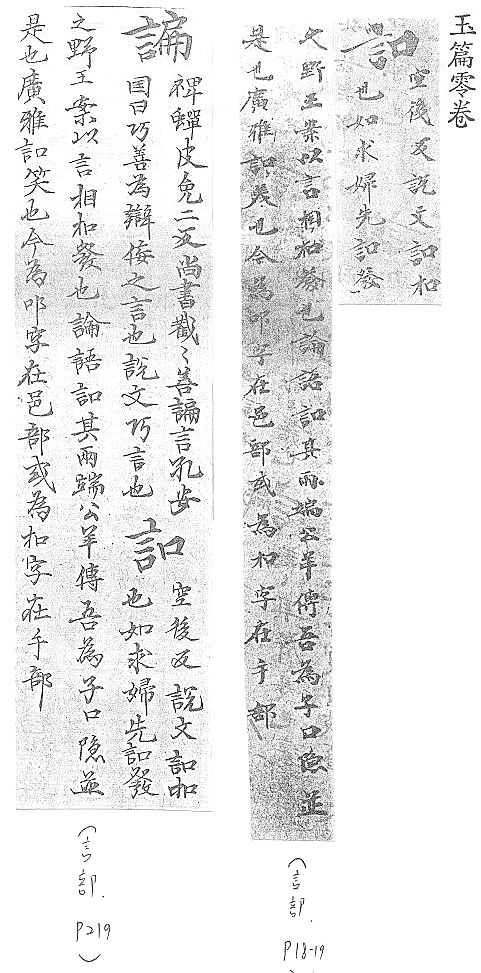 玉篇零卷
訃 空後反說文訃扣
也如求婦先訃發
之野王案以言相扣發也論語訃其兩端公羊傳吾為子口隱並
是也廣雅訃笑也今為叩字在邑部或為扣字在手部
(言部.
P18-19
諞 裨蟬皮免二反尚書截〻善諞言孔安
国曰巧善為辯侫之言也說文巧言也 訃 空後反說文訃扣
也如求婦先訃發
之野王案以言相扣發也論語訃其兩端公羊傳吾為子口隱並
是也廣雅訃笑也今為叩字在邑部或為扣字在手部
(言部.
P219
)